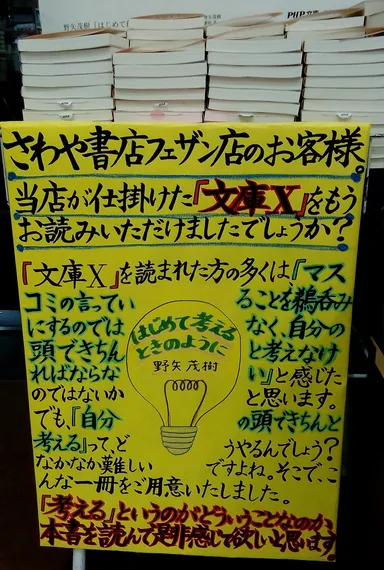 野矢茂樹『はじめて
PHP
さわや書店フェザン店のお客様。
当店が仕掛けた『文庫X』をもう
お読みいただけましたでしょうか?
『文庫X』を読まれた方の多くは、『マス
コミの言ってい ることを鵜呑み
にするのでは なく、自分の
頭できちん と考えなけ
ればならな い』と感じた
のではないか と思います。
でも、『自分 の頭できちんと
考える』って、ど うやるんでしょう?
なかなか難しい ですよね。そこで、こ
んな一冊をご用意いたしました。
「考える」というのがどういうことなのか、
本書を読んで是非感じて欲しいと思います。
はじめて考える
ときのように
野矢茂樹